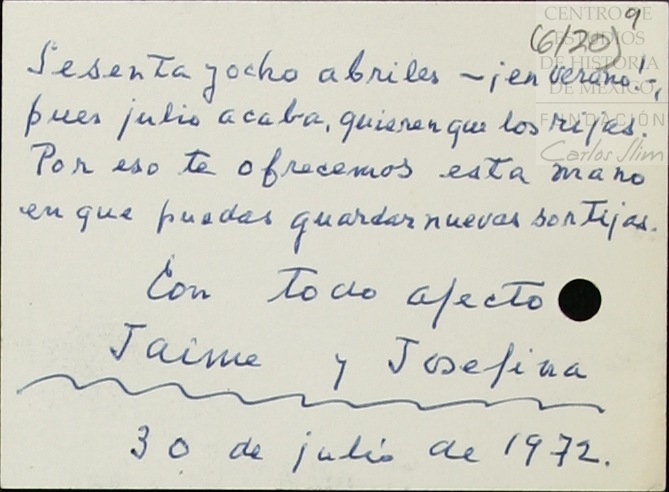 CENTRO DE
ESTUDIOS
DE HISTORIA
DE MÉXICO
FUNDACIÓN
Carlos Slim
9
(6/20)
Sesenta y ocho abriles – ¡en verano! –,
pues julio acaba, quieren que los rijas.
Por eso te ofrecemos esta mano
en que puedas guardar nuevas sortijas.
Con todo afecto
Jaime y Josefina
30 de julio de 1972.